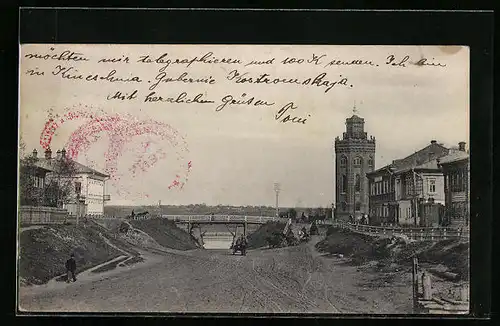 möchten mir telegraphieren und 100 K senden. Ich bin
in Kineschma. Gubernie Kostromskaja.
Mit herzlichen Grüssen
Toni